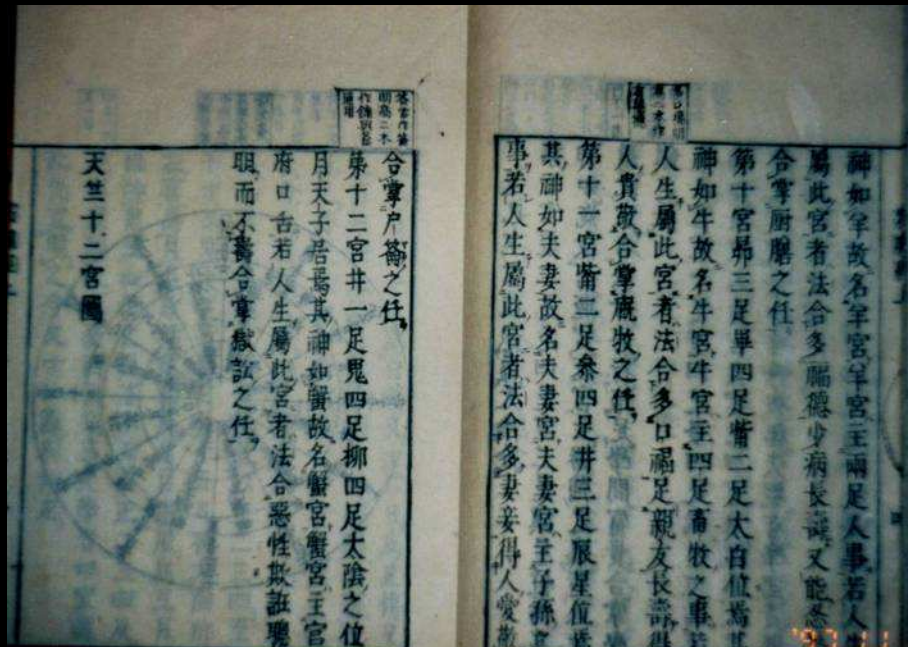 神如羊故名羊宮羊宮主兩足人事若人生
屬此宮者法合多福德少病長壽又能忍
合掌厨膳之任
第十宮昴三足畢四足觜二足太白位焉其
神如牛故名牛宮牛宮主四足畜牧之事若
人生屬此宮者法合多口福足親友長壽得
人貴敬合掌廐牧之任
第十一宮觜二足參四足井三足辰星位焉
其神如夫妻故名夫妻宮夫妻宮主子孫
事若人生屬此宮者法合多妻妾得人愛敬
合掌户籥之任
第十二宮井一足鬼四足柳四足太陰之位
月天子居焉其神如蟹故名蟹宮蟹宮主官
府口舌若人生屬此宮者法合惡性欺誑聰
明而不壽合掌獄訟之任
天竺十二宮圖
'97 11